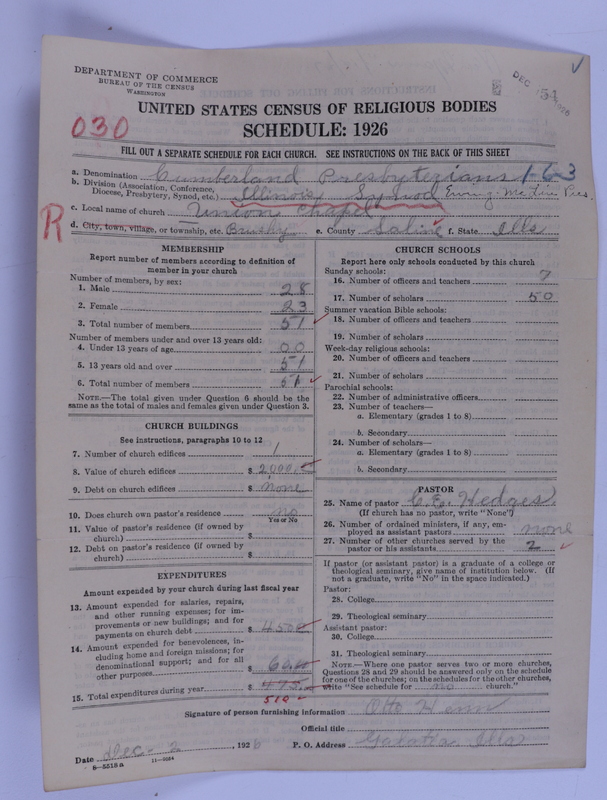 DEPARTMENT OF COMMERCE
BUREAU OF THE CENSUS
WASHINGTON
DEC
UNITED STATES CENSUS OF RELIGIOUS BODIES
SCHEDULE: 1926
030
FILL OUT A SEPARATE SCHEDULE FOR EACH CHURCH. SEE INSTRUCTIONS ON THE BACK OF THIS SHEET
a. Denomination Cumberland Presbyterians 163
b. Division (Association, Conference, Diocese, Presbytery, Synod, etc.) Illinois Synod Ewing-McLin Pres.
c. Local name of church Union Chapel
R
d. City, town, village, or township, etc. Brushy e. County Saline f. State Ills
MEMBERSHIP
Report number of members according to definition of member in your church
Number of members, by sex:
1. Male 28
2. Female 23
3. Total number of members 51
Number of members under and over 13 years old:
4. Under 13 years of age 00
5. 13 years old and over 51
6. Total number of members 51
NOTE.—The total given under Question 6 should be the same as the total of males and females given under Question 3.
CHURCH BUILDINGS
See instructions, paragraphs 10 to 12
7. Number of church edifices 1
8. Value of church edifices $ 2000.00
9. Debt on church edifices $ none
10. Does church own pastor's residence no
Yes or No
11. Value of pastor's residence (if owned by church) $
12. Debt on pastor's residence (if owned by church) $
EXPENDITURES
Amount expended by your church during last fiscal year
13. Amount expended for salaries, repairs, and other running expenses; for improvements or new buildings; and for payments on church debt $ 450.00
14. Amount expended for benevolences, including home and foreign missions; for denominational support; and for all other purposes $ 60.00
15. Total expenditures during year $ 475.00
510
CHURCH SCHOOLS
Report here only schools conducted by this church
Sunday schools:
16. Number of officers and teachers 7
17. Number of scholars 50
Summer vacation Bible schools:
18. Number of officers and teachers
19. Number of scholars
Week-day religious schools:
20. Number of officers and teachers
21. Number of scholars
Parochial schools:
22. Number of administrative officers
23. Number of teachers—
a. Elementary (grades 1 to 8)
b. Secondary
24. Number of scholars—
a. Elementary (grades 1 to 8)
b. Secondary
PASTOR
25. Name of pastor C. E. Hedges
(If church has no pastor, write "None")
26. Number of ordained ministers, if any, employed as assistant pastors none
27. Number of other churches served by the pastor or his assistants 2
If pastor (or assistant pastor) is a graduate of a college or theological seminary, give name of institution below. (If not a graduate, write "No" in the space indicated.)
Pastor:
28. College
29. Theological seminary
Assistant pastor:
30. College
31. Theological seminary
NOTE.—Where one pastor serves two or more churches, Questions 28 and 29 should be answered only on the schedule for one of the churches; on the schedules for the other churches, write "See schedule for no church."
Signature of person furnishing information Otto
Official title
Date Dec - 2, 1926 P. O. Address Galatia Ills
8-5518a 11-9584